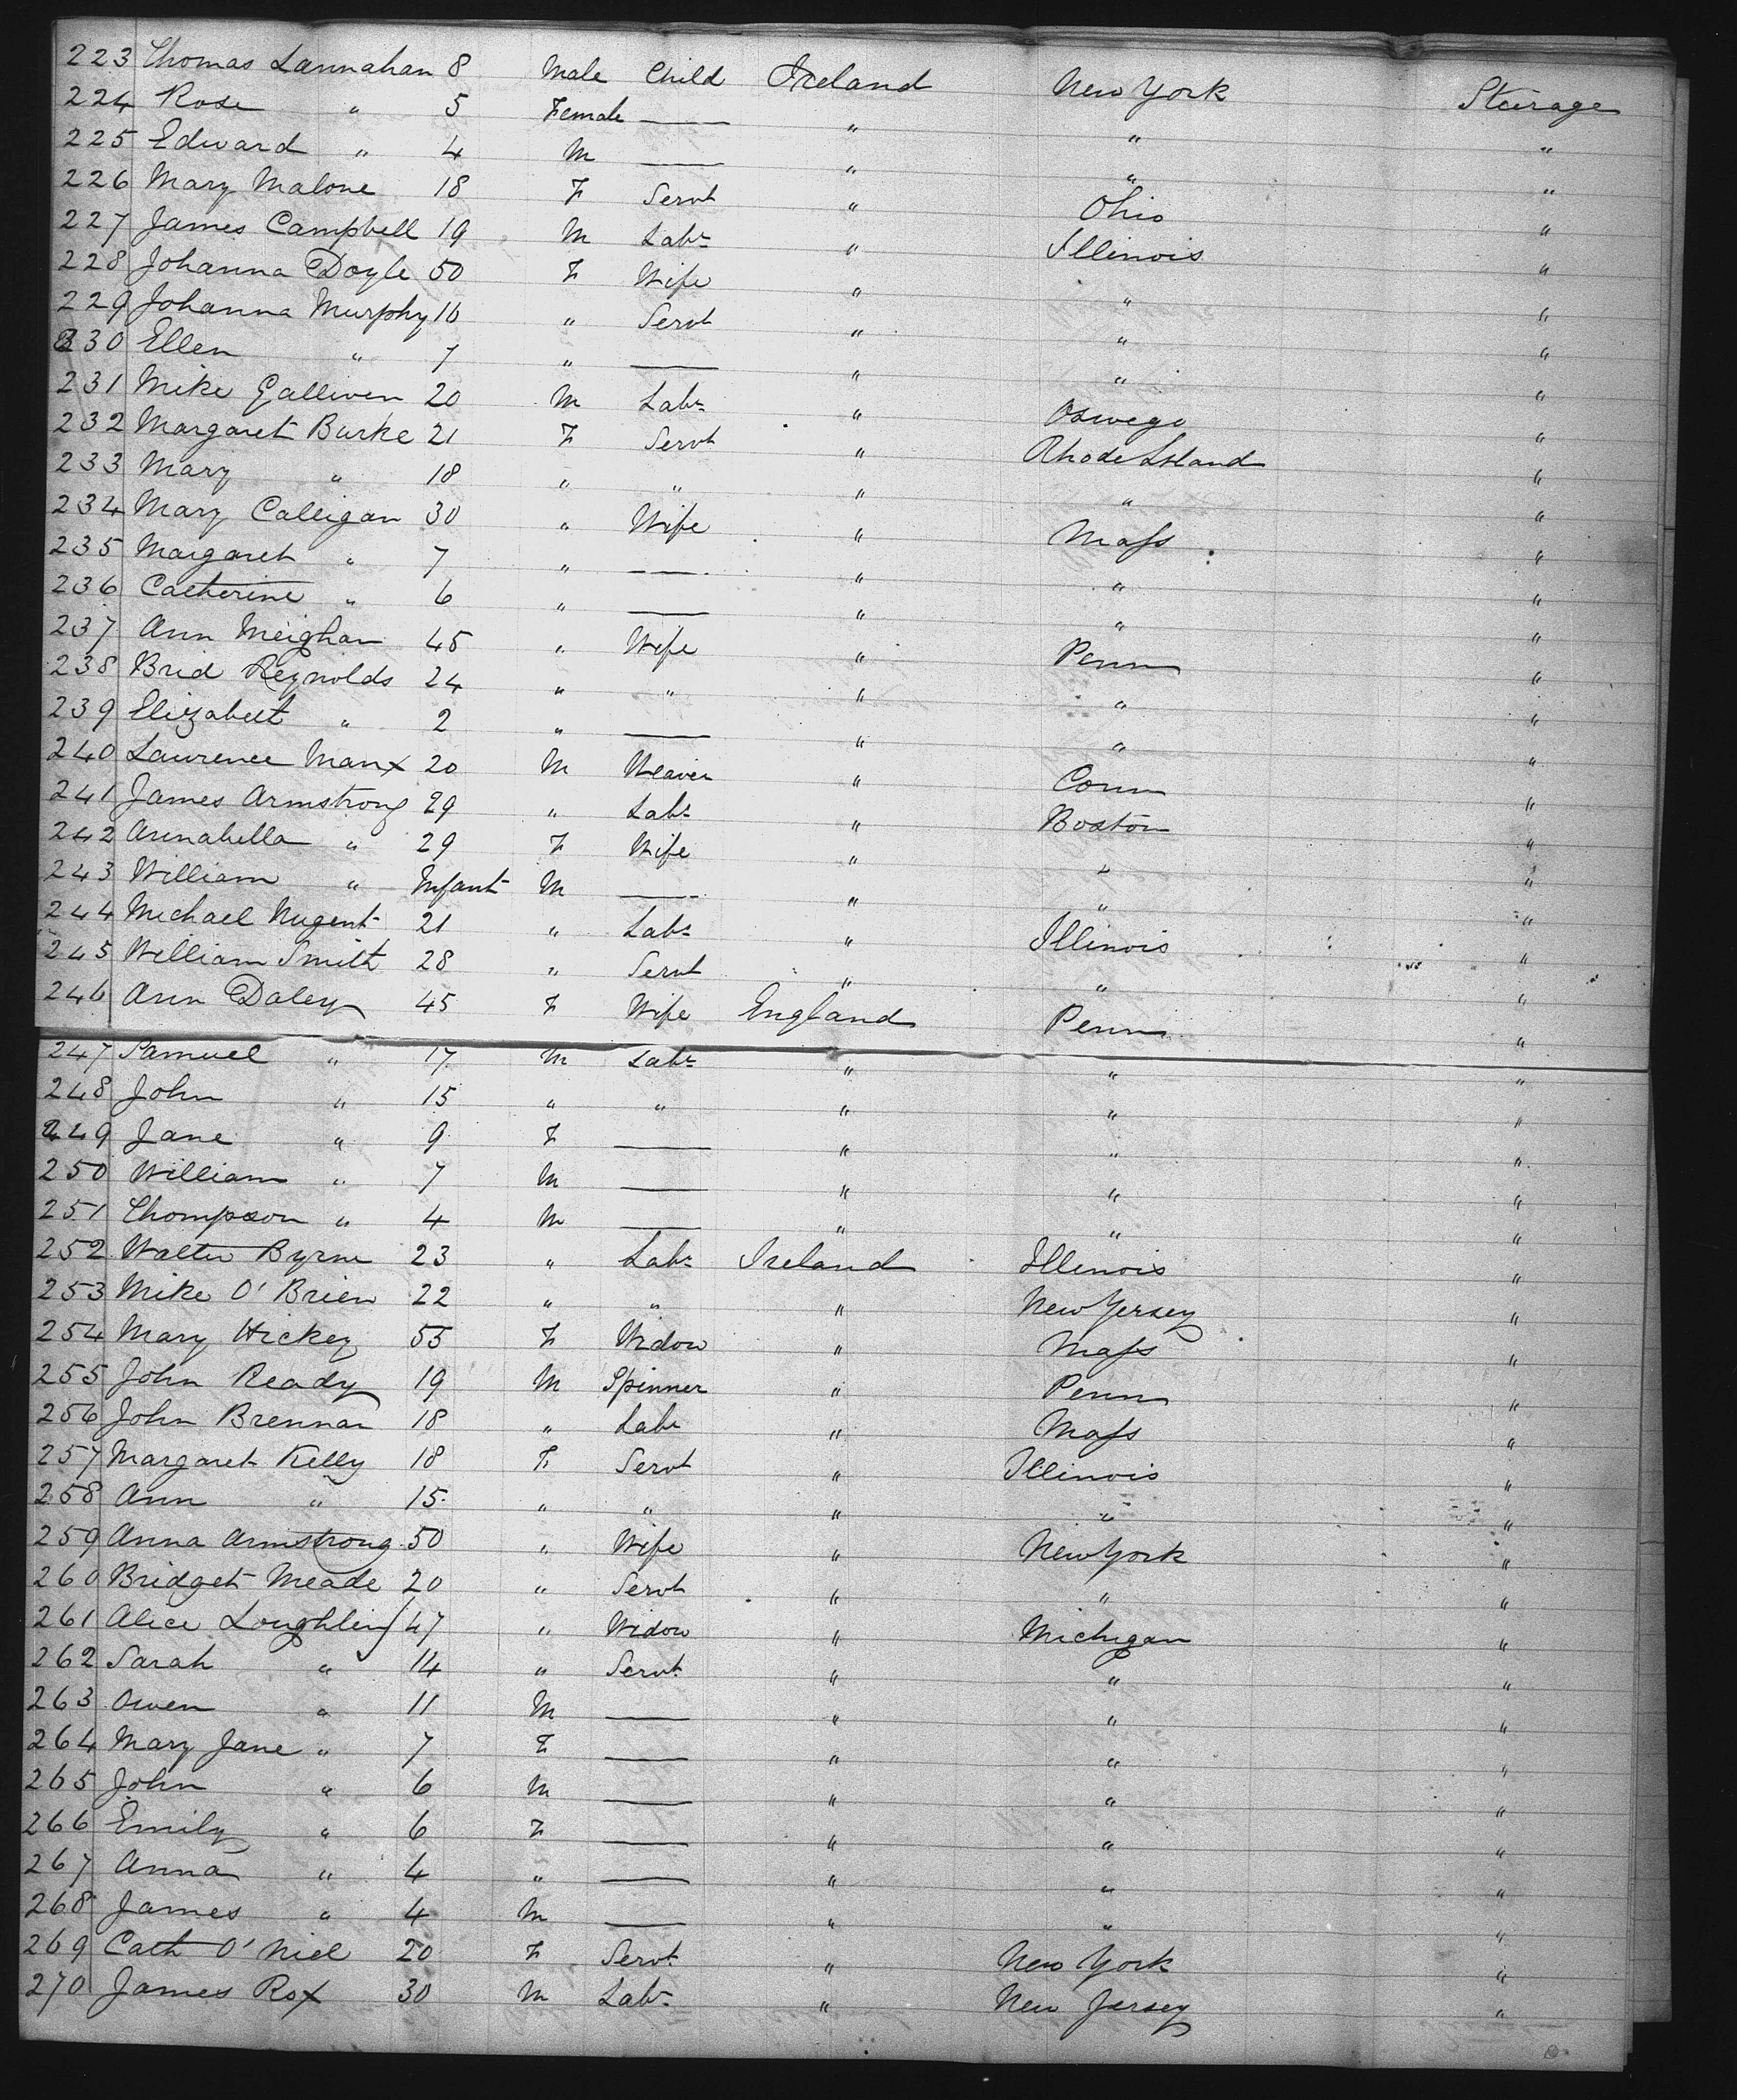 223 Thomas Lannahan 8 Male Child Ireland New York Steerage
224 Rose " 5 Female — " " "
225 Edward " 4 M — " " "
226 Mary Malone 18 F Servt " Ohio "
227 James Campbell 19 M Labr " Illinois "
228 Johanna Doyle 50 F Wife " " "
229 Johanna Murphy 16 " Servt " " "
230 Ellen " 7 " — " " "
231 Mike Galliven 20 M Labr " Oswego "
232 Margaret Burke 21 F Servt " Rhode Island "
233 Mary " 18 " " " " "
234 Mary Calligan 30 " Wife " Mass "
235 Margaret " 7 " — " " "
236 Catherine " 6 " — " " "
237 Ann Meighan 45 " Wife " Penn "
238 Brid Reynolds 24 " " " " "
239 Elizabeet " 2 " — " " "
240 Lawrence Manx 20 M Weaver " Conn "
241 James Armstrong 29 " Labr " Boston "
242 Annabella " 29 F Wife " " "
243 William " Infant M — " " "
244 Michael Nugent 21 " Labr " Illinois "
245 William Smith 28 " Servt " " "
246 Ann Daley 45 F Wife England Penn "
247 Samuel " 17 M Labr " " "
248 John " 15 " " " " "
249 Jane " 9 F — " " "
250 William " 7 M — " " "
251 Thompson " 4 M — " " "
252 Walter Byrne 23 " Labr Ireland Illinois "
253 Mike O'Brien 22 " " " New Jersey "
254 Mary Hickey 55 F Widow " Mass "
255 John Ready 19 M Spinner " Penn "
256 John Brennan 18 " Labr " Mass "
257 Margaret Kelly 18 F Servt " Illinois "
258 Ann " 15 " " " " "
259 Anna Armstrong 50 " Wife " New York "
260 Bridget Meade 20 " Servt " " "
261 Alice Loughlin 47 " Widow " Michigan "
262 Sarah " 14 " Servt " " "
263 Owen " 11 M — " " "
264 Mary Jane " 7 F — " " "
265 John " 6 M — " " "
266 Emily " 6 F — " " "
267 Anna " 4 " — " " "
268 James " 4 M — " " "
269 Cath O'Niel 20 F Servt " New York "
270 James Rox 30 M Labr " New Jersey "